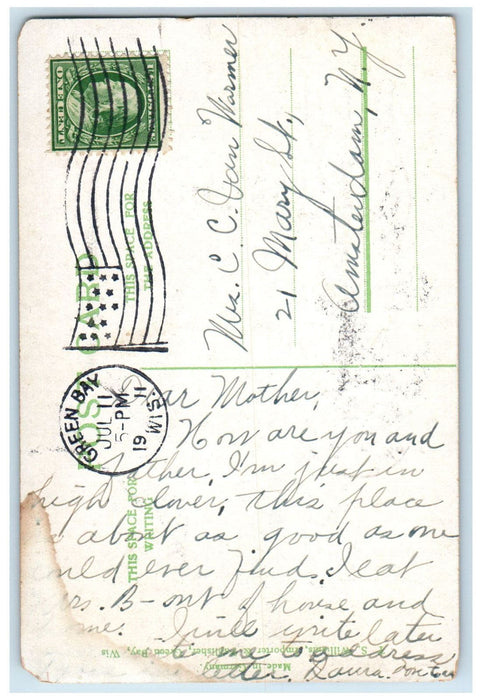 POST CARD
THIS SPACE FOR
THE ADDRESS
THIS SPACE FOR
WRITING
GREEN BAY
JUL 11
5-PM
1911
WIS.
Mrs. C. C. Van Warmer
21 Mary St.,
Amsterdam, N.Y.
Dear Mother,
How are you and
father, I'm just in
high clover, this place
is about as good as one
could ever find. I eat
Mrs. B- out of house and
home. I will write later
address
letter, Laura.
S. Williams, Importer & Publisher, Green Bay, Wis
Made in Germany.